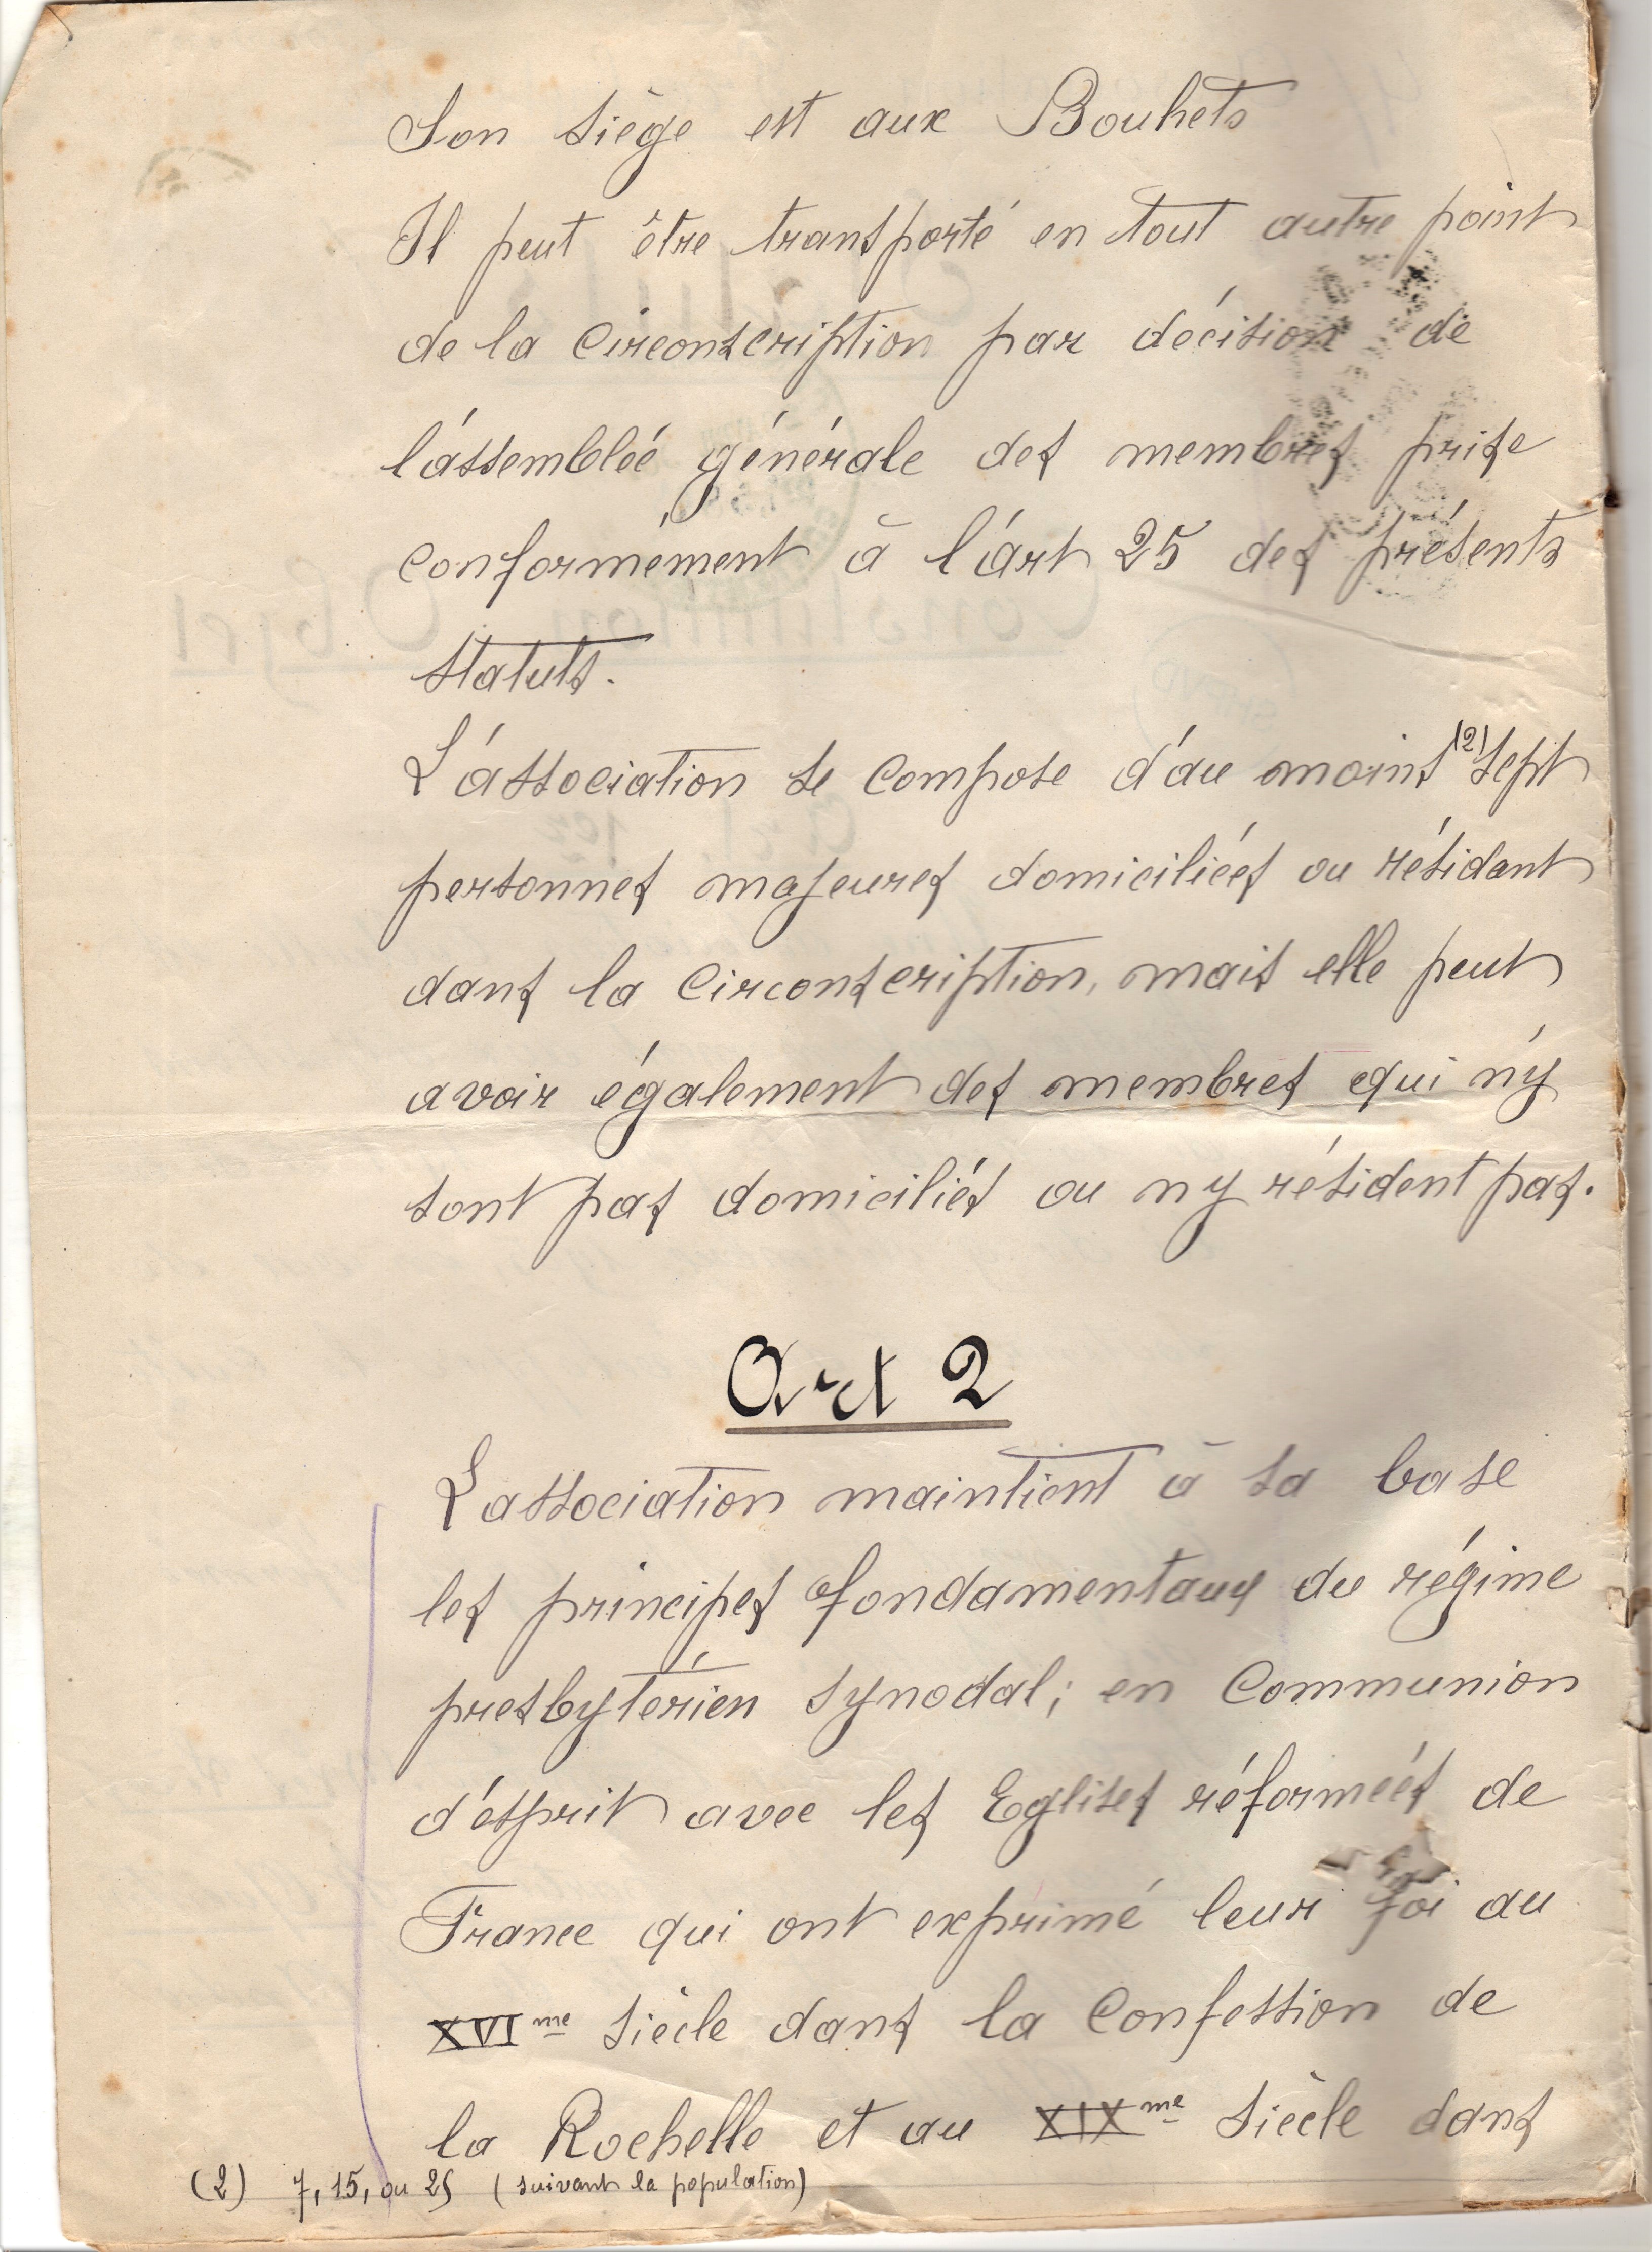 Son siège est aux Bouhets
Il peut être transporté en tout autre point
de la circonscription par décision de
l'assemblée générale des membres prise
conformément à l'art 25 des présents
statuts.
L'association se compose d'au moins (2) sept
personnes majeures domiciliées ou résidant
dans la circonscription, mais elle peut
avoir également des membres qui n'y
sont pas domiciliés ou n'y résident pas.
Art 2
L'association maintient à sa base
les principes fondamentaux du régime
presbytérien synodal; en communion
d'esprit avec les Eglises réformées de
France qui ont exprimé leur foi au
XVIme siècle dans la Confession de
la Rochelle et au XIXme siècle dans
(2) 7, 15, ou 25 (suivant la population)